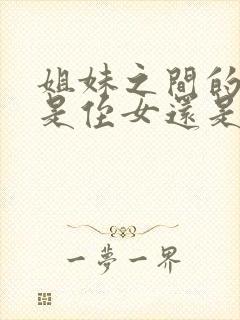 姐妹之間的
是侄女還是
一夢一界